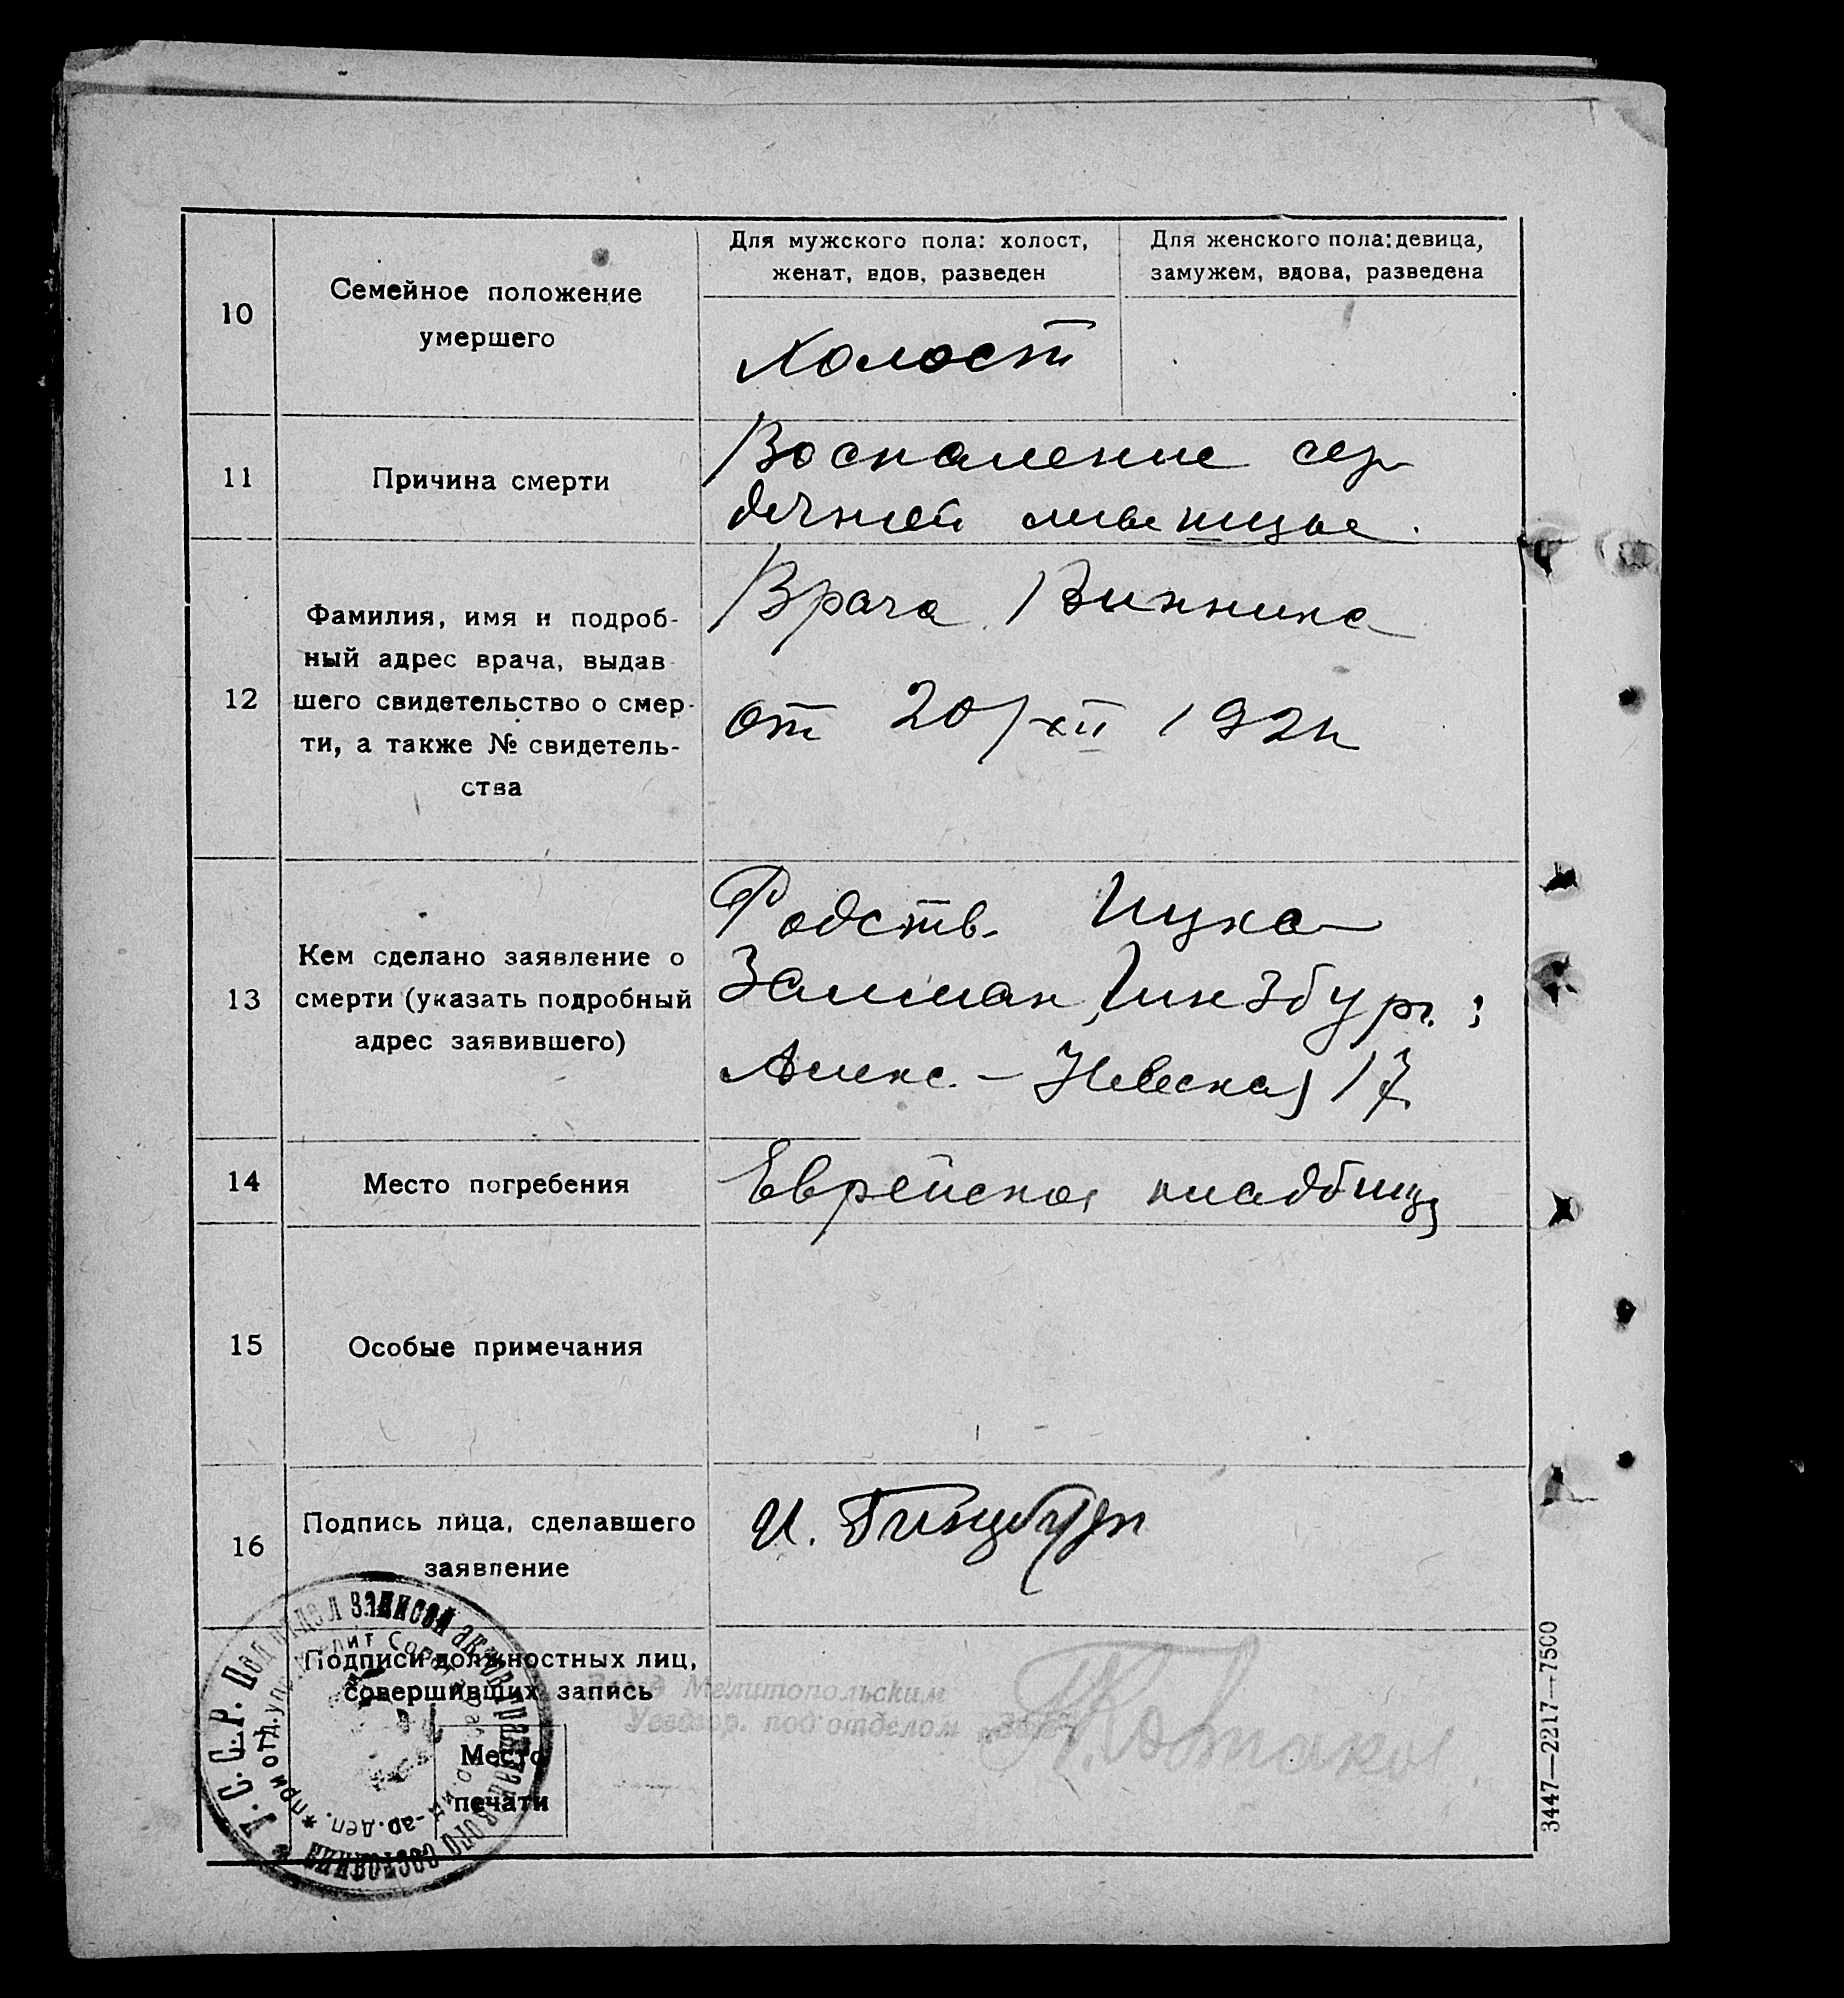 Для мужского пола: холост,
женат, вдов, разведен
Для женского пола: девица,
замужем, вдова, разведена
10
Семейное положение
умершего
Холост
11
Причина смерти
Воспаление сер
дечной мышцы.
12
Фамилия, имя и подроб-
ный адрес врача, выдав-
шего свидетельство о смер-
ти, а также № свидетель-
ства
Врача Винника
от 20/XII 192
13
Кем сделано заявление о
смерти (указать подробный
адрес заявившего)
Родств. Ицка
Залман Гинзбург:
Алекс.-Невская 17
14
Место погребения
Еврейское кладбище
15
Особые примечания
16
Подпись лица, сделавшего
заявление
И. Гинцбург
Подписи должностных лиц,
совершивших запись
Место
печати
Мелитопольским
Уездгор. подотделом
У.С.С.Р. Подотдел записей актов гражданского состояния
3447—2217—7500